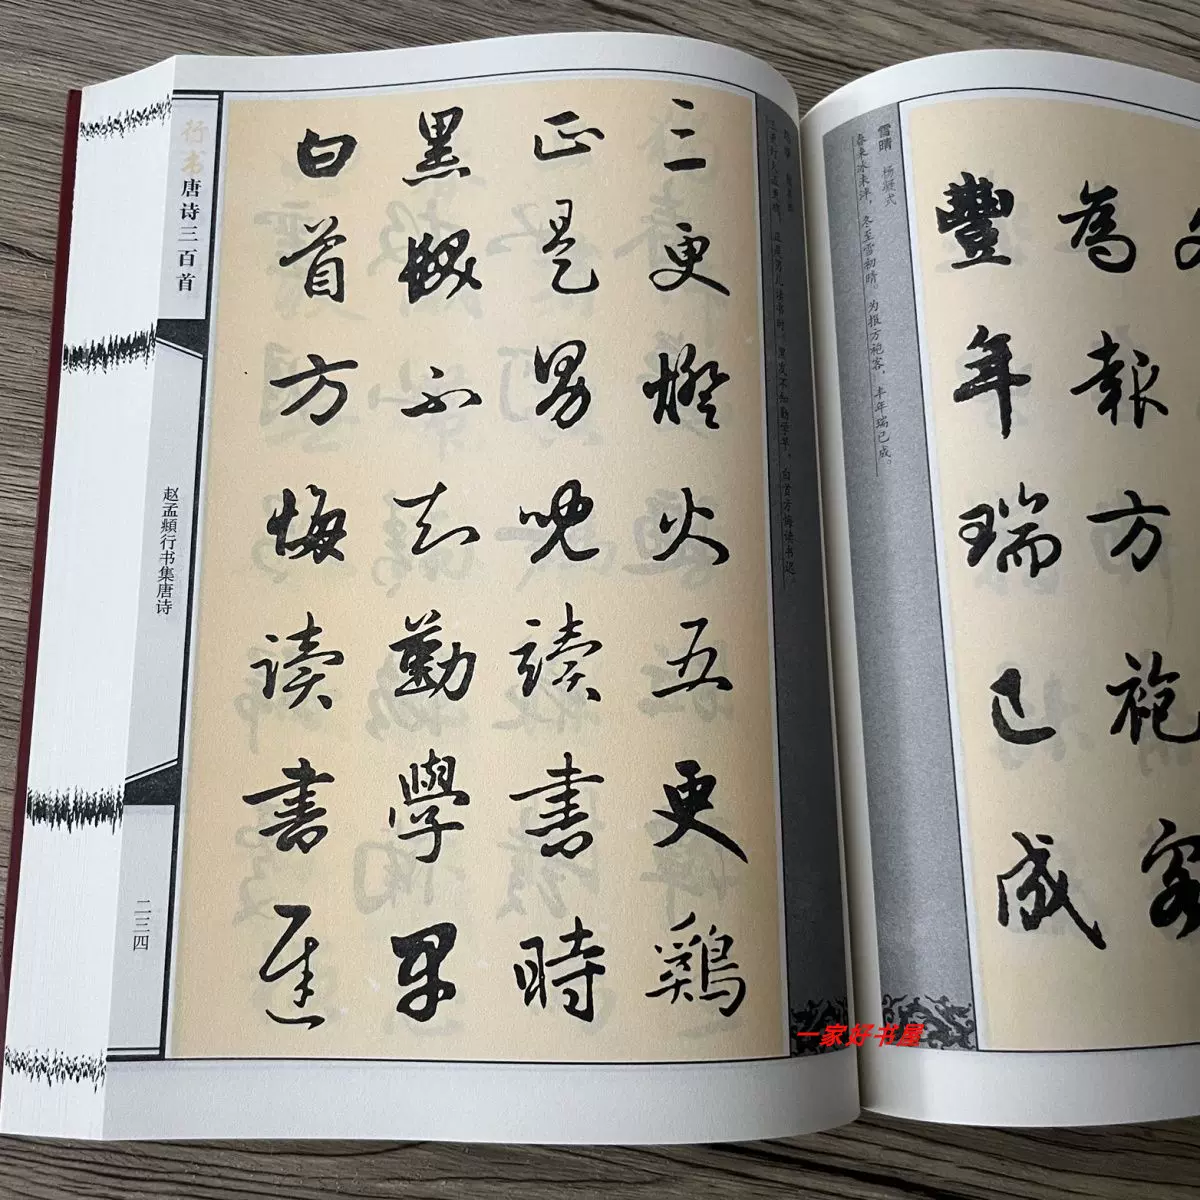 行书唐诗三百首
赵孟頫行书集唐诗
二三四
劝学 颜真卿
三更灯火五更鸡，正是男儿读书时。黑发不知勤学早，白首方悔读书迟。
三更燈火五更鷄
正是男兒讀書時
黑髮不知勤學早
白首方悔读書遲
雪晴 杨凝式
春来冰未泮，冬至雪初晴。为报方袍客，丰年瑞已成。
為報方袍客
豐年瑞已成
一家好书屋